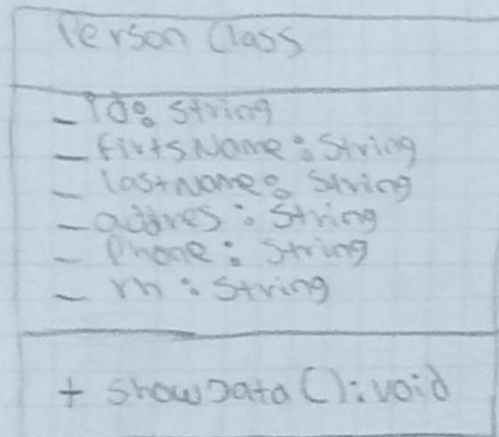 Person Class
- Id: String
- firtsName: String
- lastName: String
- addres: String
- Phone: String
- rh: String
+ showData(): void